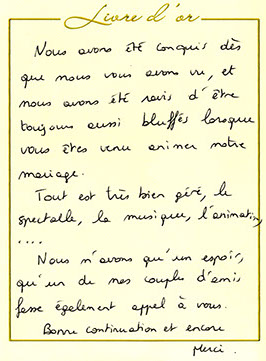 Livre d'or
Nous avons été conquis dès
que nous vous avons vu, et
nous avons été ravis d'être
toujours aussi bluffés lorsque
vous êtes venu animer notre
mariage.
Tout est très bien géré, le
spectacle, la musique, l'animation,
....
Nous n'avons qu'un espoir,
qu'un de nos couple d'amis
fasse également appel à vous.
Bonne continuation et encore
Merci.